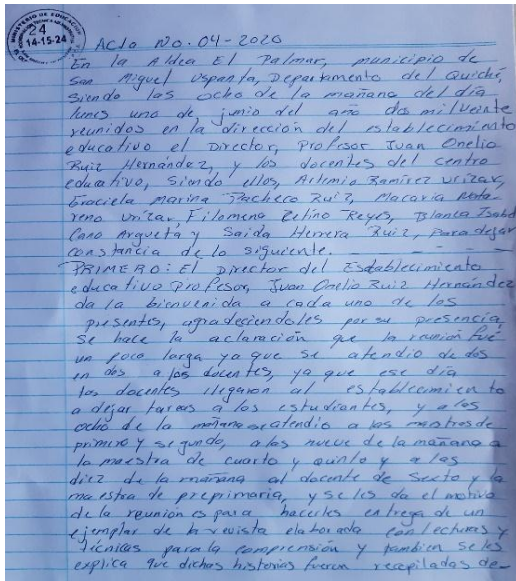 MINISTERIO DE EDUCACION
24
14-15-24
Acta No. 04-2020
En la Aldea El Palmar, municipio de
San Miguel Uspanta, Departamento del Quiché,
siendo las ocho de la mañana del día
lunes uno de junio del año dos mil veinte
reunidos en la dirección del establecimiento
educativo el Director, Profesor Juan Onelio
Ruiz Hernández, y los docentes del centro
educativo, siendo ellos, Artemio Ramírez Urizar,
Graciela Marina Pacheco Ruiz, Macaria
Urizar, Filomena Reyes, Blanca Isabel
Cano Argueta y Saida Herrera Ruiz, para dejar
constancia de lo siguiente. - - - - -
PRIMERO: El Director del Establecimiento
educativo Profesor, Juan Onelio Ruiz Hernández
da la bienvenida a cada uno de los
presentes, agradeciendoles por su presencia,
se hace la aclaración que la reunión fué
un poco larga ya que se atendio de dos
en dos a los docentes, ya que ese día
los docentes llegaron al establecimiento
a dejar tareas a los estudiantes, y a las
ocho de la mañana se atendio a los maestros de
primero y segundo, a las nueve de la mañana a
la maestra de cuarto y quinto y a las
diez de la mañana al docente de Sexto y la
maestra de preprimaria, y se les da el motivo
de la reunión es para hacerles entrega de un
ejemplar de la revista elaborada con lecturas y
técnicas para la comprensión y tambien se les
explica que dichas historias fueron recopiladas de-